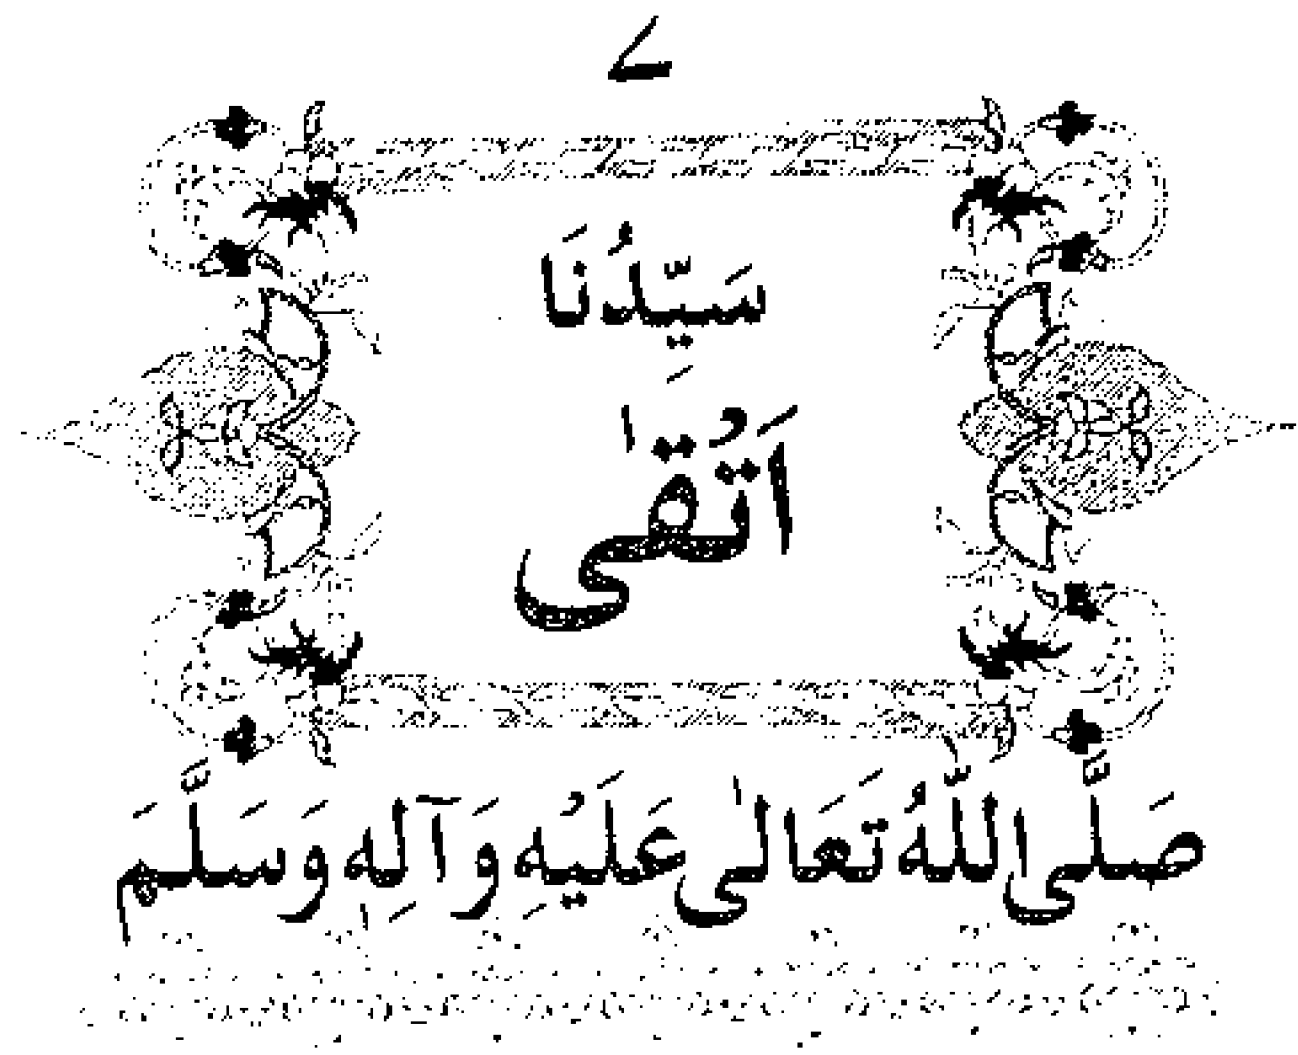 ۷
سَيِّدُنَا
اَتْقٰى
صَلَّى اللّٰهُ تَعَالٰى عَلَيْهِ وَآلِهٖ وَسَلَّمَ